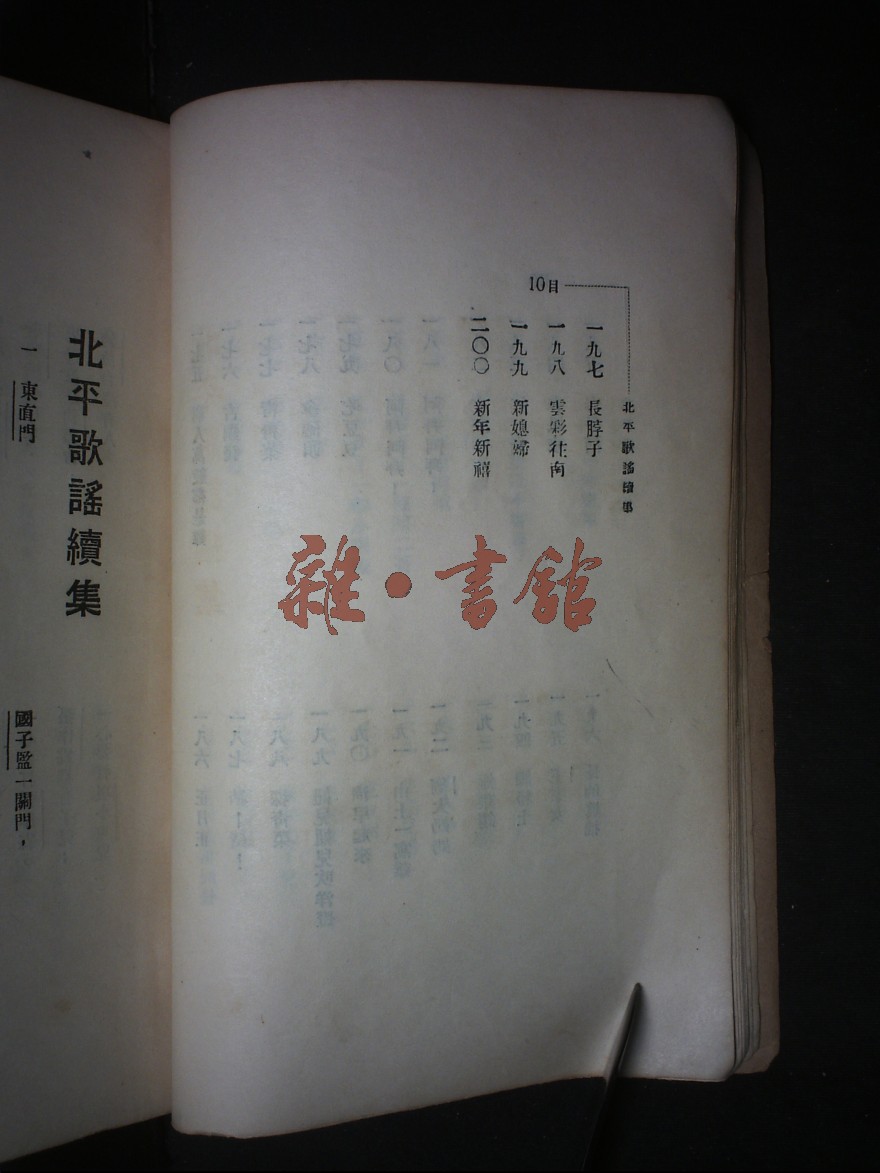 北平歌謠續集
10目
一九七 長脖子
一九八 雲彩往南
一九九 新媳婦
二〇〇 新年新禧
雜・書館
北平歌謠續集
一 東直門
國子監一關門，